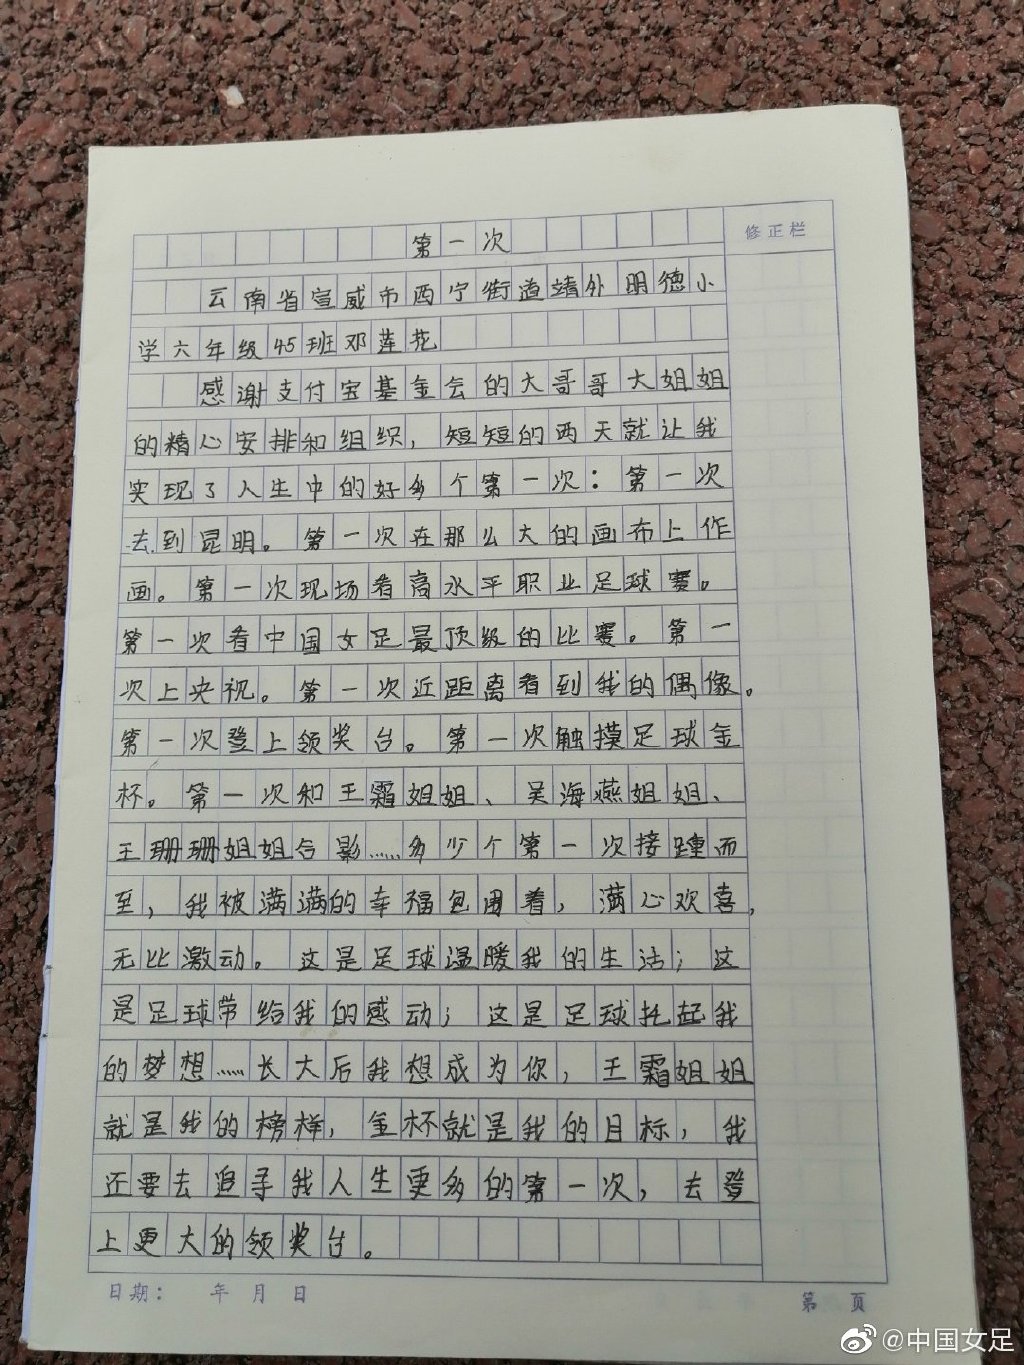 第一次
修正栏
云南省宣威市西宁街道靖外明德小
学六年级45班邓莲花
感谢支付宝基金会的大哥哥大姐姐
的精心安排和组织，短短的两天就让我
实现了人生中的好多个第一次：第一次
去到昆明。第一次在那么大的画布上作
画。第一次现场看高水平职业足球赛。
第一次看中国女足最顶级的比赛。第一
次上央视。第一次近距离看到我的偶像。
第一次登上领奖台。第一次触摸足球金
杯。第一次和王霜姐姐、吴海燕姐姐、
王珊珊姐姐合影……多少个第一次接踵而
至，我被满满的幸福包围着，满心欢喜，
无比激动。这是足球温暖我的生活；这
是足球带给我的感动；这是足球托起我
的梦想……长大后我想成为你，王霜姐姐
就是我的榜样，金杯就是我的目标，我
还要去追寻我人生更多的第一次，去登
上更大的领奖台。
日期： 年 月 日
第 页
@中国女足